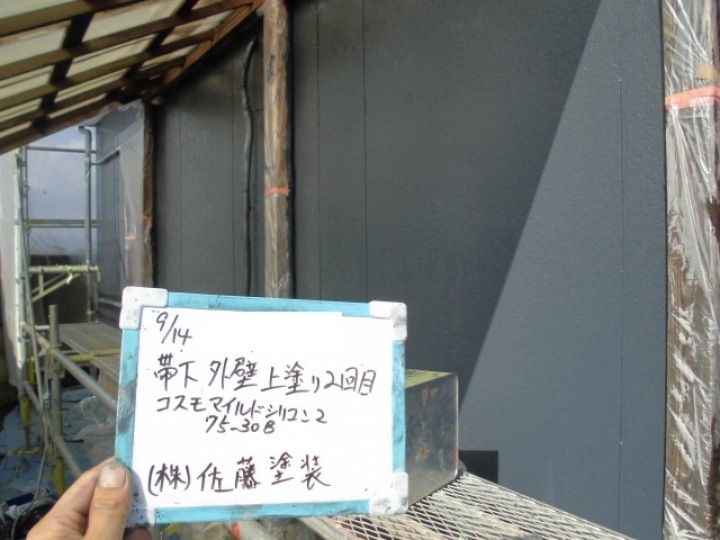 9/14
帯下 外壁 上塗り2回目
コスモマイルドシリコン2
75-30B
(株)佐藤塗装